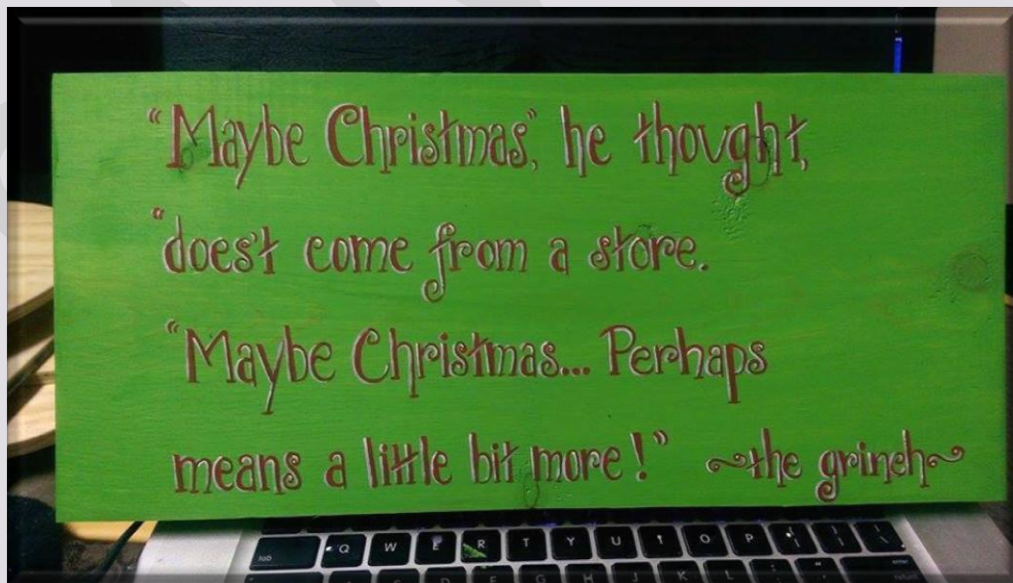 "Maybe Christmas", he thought,
"does't come from a store.
"Maybe Christmas... Perhaps
means a little bit more!" ~the grinch~
tab Q W E R T Y U I O P { [ } ] | \
return
S D F G H J K L